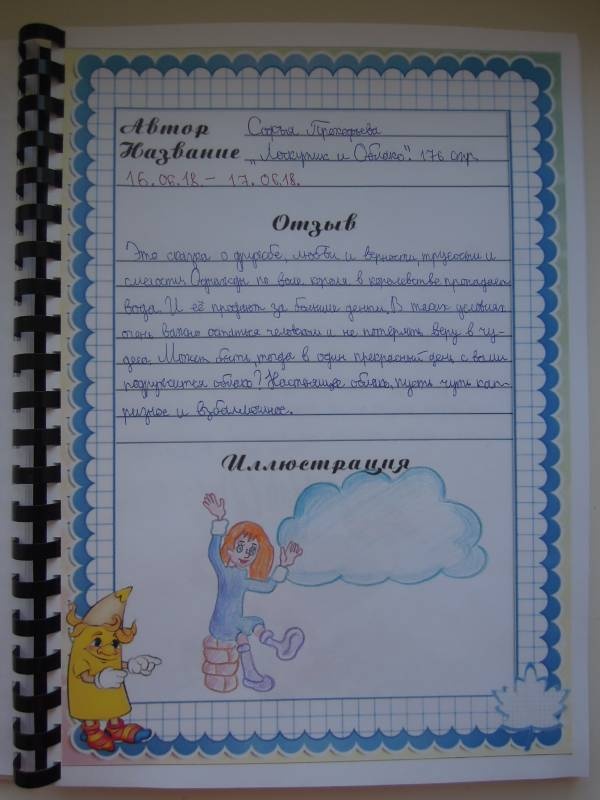 Автор Софья Прокофьева
Название „Лоскутик и Облако". 176 стр.
16.06.18. – 17.06.18.
Отзыв
Это сказка о дружбе, любви и верности, трусости и
смелости. Однажды по воле короля в королевстве пропадает
вода. И её продают за большие деньги. В таких условиях
очень важно остаться человеком и не потерять веру в чу-
деса. Может быть, тогда в один прекрасный день с вами
подружится облако? Настоящее облако, пусть чуть кап-
ризное и взбалмошное.
Иллюстрация